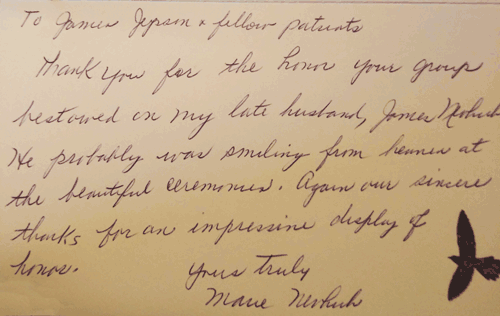 To James Jepson & fellow patriots
Thank you for the honor your group
bestowed on my late husband, James
He probably was smiling from heaven at
the beautiful ceremonies. Again our sincere
thanks for an impressive display of
honor.
Yours truly
Marie